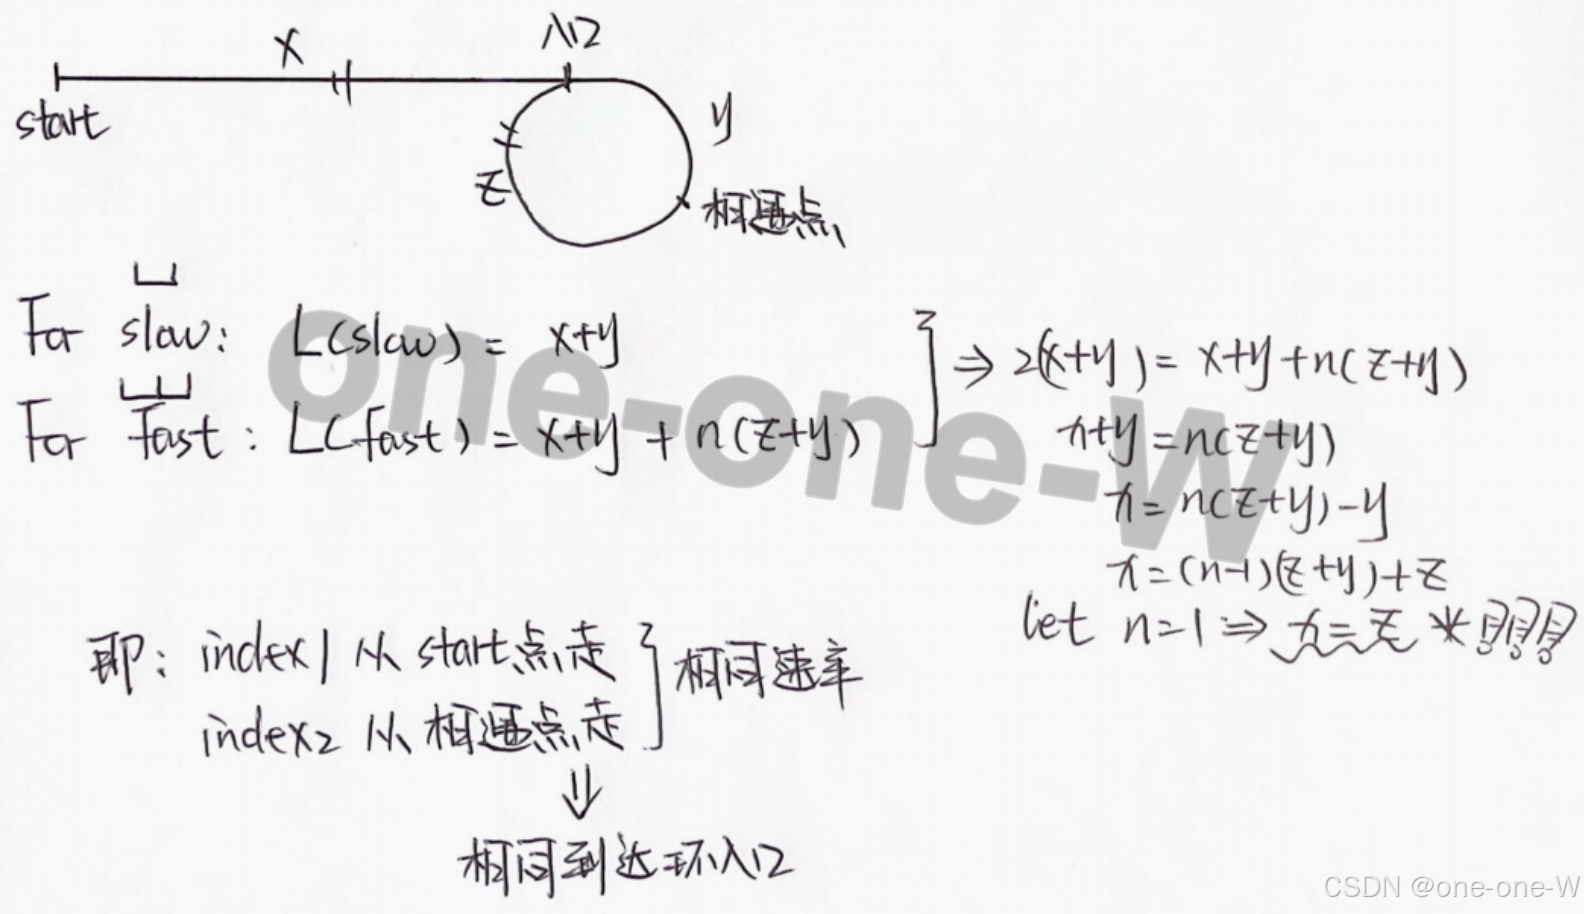 x
入口
start
y
z
相遇点
For slow: L(slow) = x+y
For fast: L(fast) = x+y + n(z+y)
⇒ 2(x+y) = x+y+n(z+y)
x+y = n(z+y)
x = n(z+y)-y
x = (n-1)(z+y)+z
let n=1 ⇒ x=z *!!!
即: index1 从 start点走
index2 从 相遇点走
相同速率
⇓
相同到达环入口
one-one-W
CSDN @one-one-W